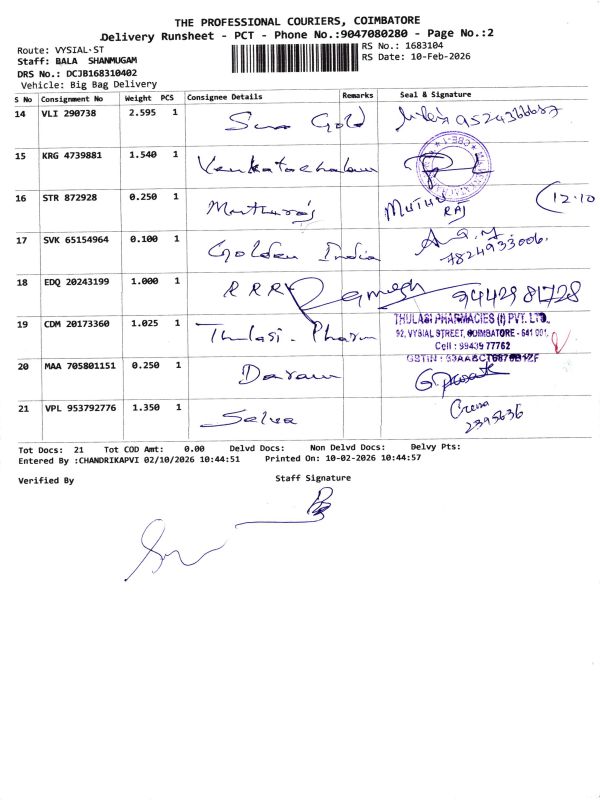 THE PROFESSIONAL COURIERS, COIMBATORE
Delivery Runsheet - PCT - Phone No.:9047080280 - Page No.:2
Route: VYSIAL-ST
RS No.: 1683104
Staff: BALA SHANMUGAM
RS Date: 10-Feb-2026
DRS No.: DCJB168310402
Vehicle: Big Bag Delivery
S No Consignment No Weight PCS Consignee Details Remarks Seal & Signature
14 VLI 290738 2.595 1 Sun Gold
15 KRG 4739881 1.540 1 Venkatachalam
16 STR 872928 0.250 1 Muthuraj MUTHU RAJ 12.10
17 SVK 65154964 0.100 1 Golden India 7824933006.
18 EDQ 20243199 1.000 1 RRRV Ramesh 9442981728
19 CDM 20173360 1.025 1 Thulasi - Pharm
THULASI PHARMACIES (I) PVT. LTD.,
92, VYSIAL STREET, COIMBATORE - 641 001.
Cell : 99439 77762
20 MAA 705801151 0.250 1
21 VPL 953792776 1.350 1 Selva 2395636
Tot Docs: 21 Tot COD Amt: 0.00 Delvd Docs: Non Delvd Docs: Delvy Pts:
Entered By :CHANDRIKAPVI 02/10/2026 10:44:51 Printed On: 10-02-2026 10:44:57
Verified By Staff Signature